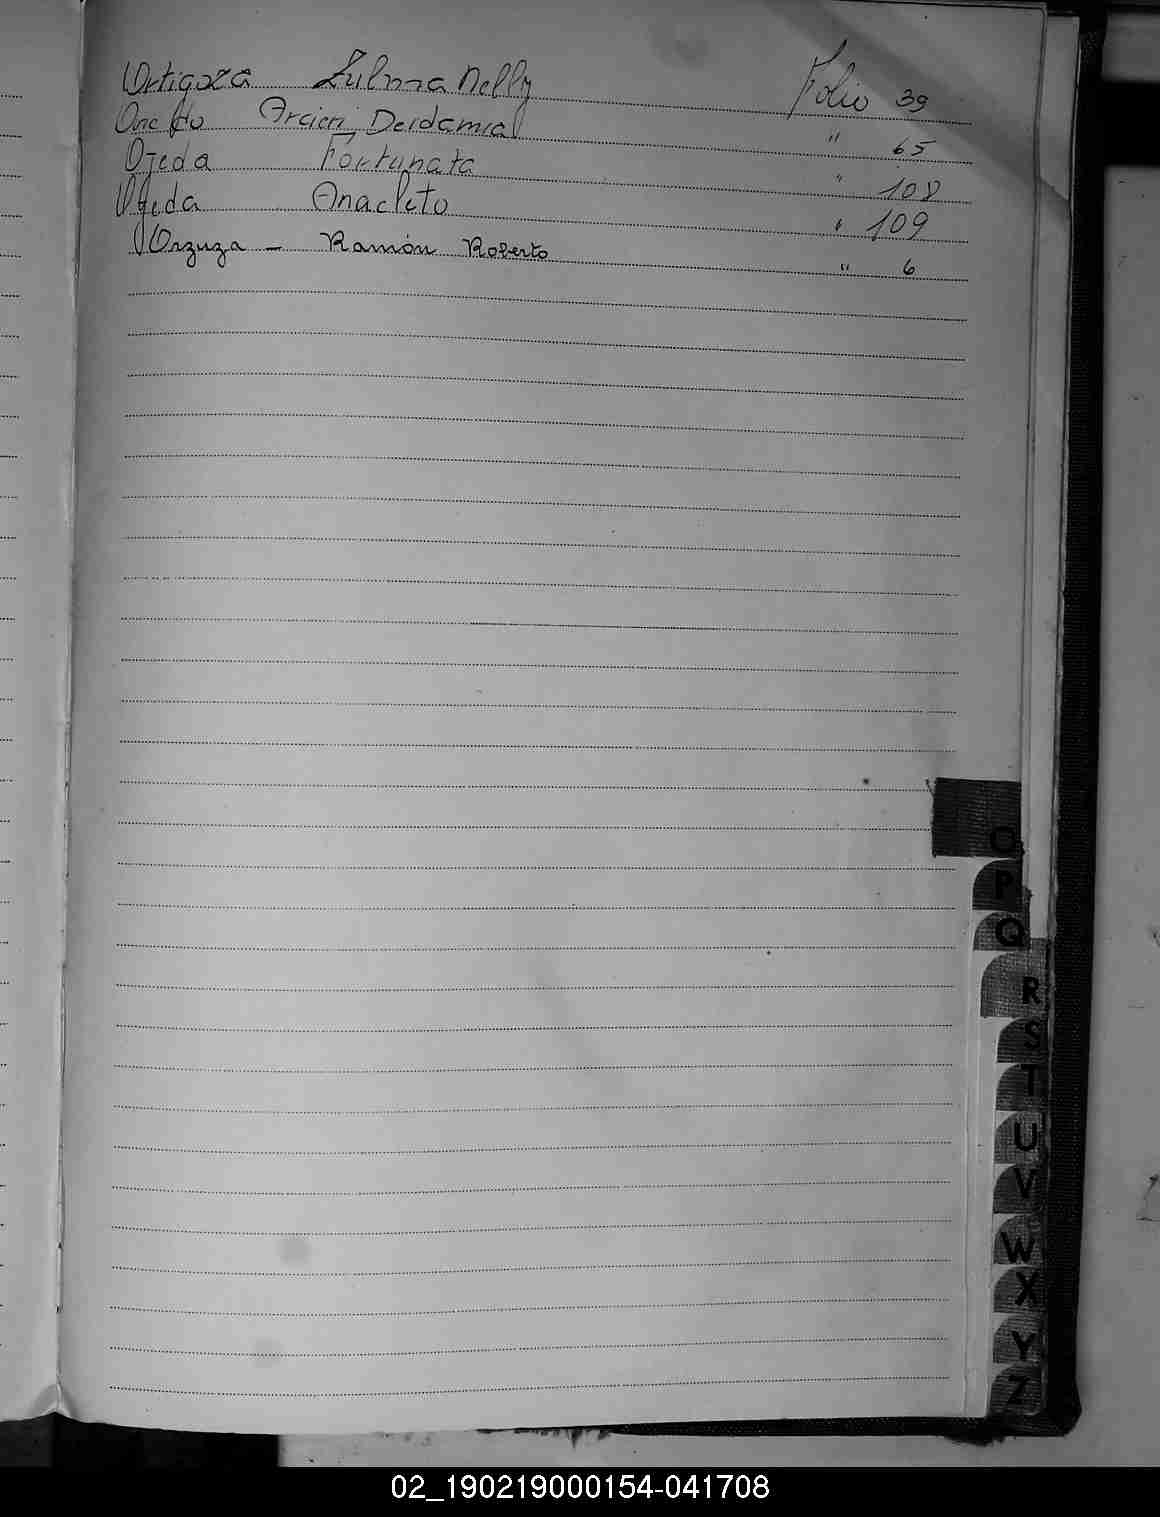 Ortigoza Zulma Nelly Folio 39
Arcieri, Deidamia " 65
Ojeda Fortunata " 108
Ojeda Anacleto " 109
Orzuza - Ramón Roberto " 6
O
P
Q
R
S
T
U
V
W
X
Y
Z
02_190219000154-041708